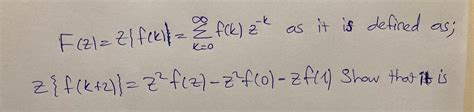 F(z) = Z{f(k)} = ∑_{k=0}^{∞} f(k) z^{-k} as it is defined as;
Z{f(k+2)} = z²f(z) - z²f(0) - zf(1) Show that it is